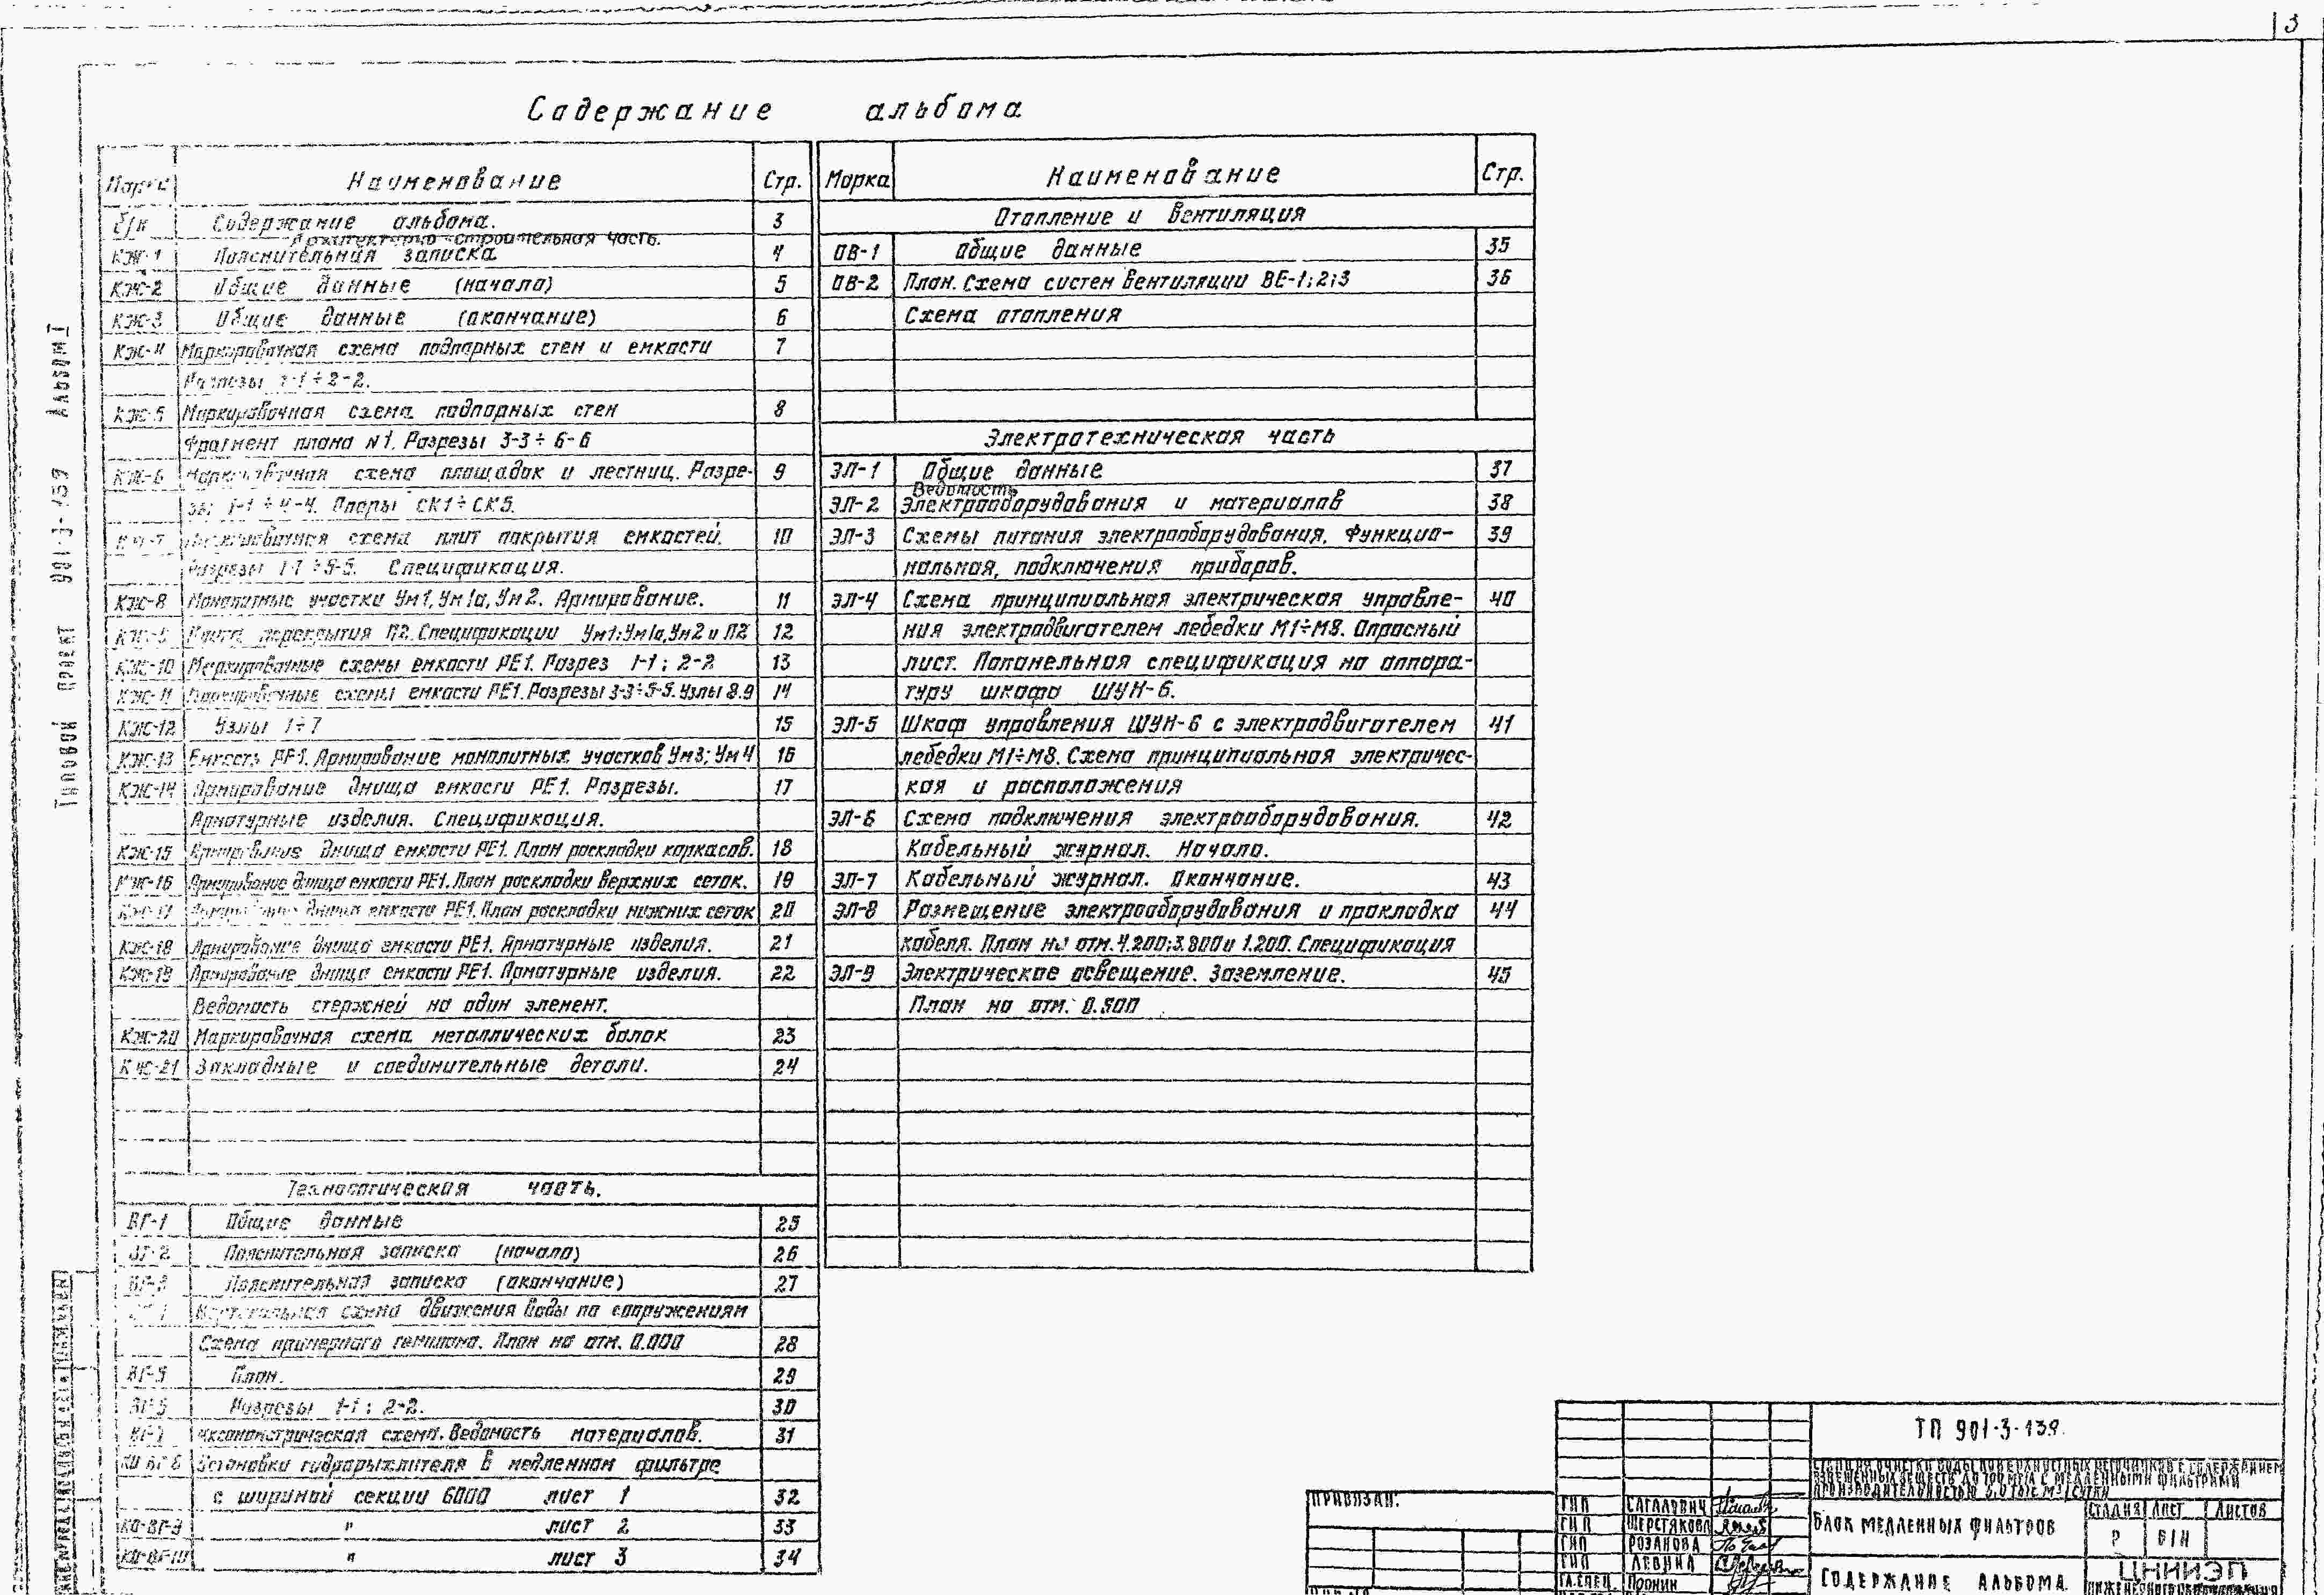 3
Содержание альбома
Марка Наименование Стр.
б/н Содержание альбома. 3
Архитектурно-строительная часть.
КЖ-1 Пояснительная записка 4
КЖ-2 Общие данные (начало) 5
КЖ-3 Общие данные (окончание) 6
КЖ-4 Маркировочная схема подпорных стен и емкости 7
Разрезы 1-1÷2-2.
КЖ-5 Маркировочная схема подпорных стен 8
Фрагмент плана N1. Разрезы 3-3÷6-6
КЖ-6 Маркировочная схема площадок и лестниц. Разре- 9
зы 1-1÷4-4. Опоры СК1÷СК5.
КЖ-7 Маркировочная схема плит покрытия емкостей. 10
Разрезы 1-1÷5-5. Спецификация.
КЖ-8 Монолитные участки Ум1, Ум1а, Ум2. Армирование. 11
КЖ-9 Плита перекрытия П2. Спецификации Ум1; Ум1а, Ум2 и П2 12
КЖ-10 Маркировочные схемы емкости РЕ1. Разрез 1-1; 2-2 13
КЖ-11 Маркировочные схемы емкости РЕ1. Разрезы 3-3÷5-5. Узлы 8.9 14
КЖ-12 Узлы 1÷7 15
КЖ-13 Емкость РЕ1. Армирование монолитных участков Ум3; Ум4 16
КЖ-14 Армирование днища емкости РЕ1. Разрезы. 17
Арматурные изделия. Спецификация.
КЖ-15 Армирование днища емкости РЕ1. План раскладки каркасов. 18
КЖ-16 Армирование днища емкости РЕ1. План раскладки верхних сеток. 19
КЖ-17 Армирование днища емкости РЕ1. План раскладки нижних сеток 20
КЖ-18 Армирование днища емкости РЕ1. Арматурные изделия. 21
КЖ-19 Армирование днища емкости РЕ1. Арматурные изделия. 22
Ведомость стержней на один элемент.
КЖ-20 Маркировочная схема металлических балок 23
КЖ-21 Закладные и соединительные детали. 24
Технологическая часть.
ВГ-1 Общие данные 25
ВГ-2 Пояснительная записка (начало) 26
ВГ-3 Пояснительная записка (окончание) 27
ВГ-4 схема движения воды по сооружениям
Схема примерного генплана. План на отм. 0.000 28
ВГ-5 План. 29
ВГ-6 Разрезы 1-1; 2-2. 30
ВГ-7 Аксонометрическая схема. Ведомость материалов. 31
ВГ-8 Установки гидрорыхлителя в медленном фильтре
с шириной секции 6000 лист 1 32
ВГ-9 " лист 2 33
ВГ-10 " лист 3 34
Марка Наименование Стр.
Отопление и вентиляция
ОВ-1 Общие данные 35
ОВ-2 План. Схема систем вентиляции ВЕ-1;2;3 36
Схема отопления
Электротехническая часть
ЭЛ-1 Общие данные 37
Ведомость
ЭЛ-2 электрооборудования и материалов 38
ЭЛ-3 Схемы питания электрооборудования. Функцио- 39
нальная, подключения приборов.
ЭЛ-4 Схема принципиальная электрическая управле- 40
ния электродвигателем лебедки М1÷М8. Опросный
лист. Попанельная спецификация на аппара-
туру шкафа ШУН-6.
ЭЛ-5 Шкаф управления ШУН-6 с электродвигателем 41
лебедки М1÷М8. Схема принципиальная электричес-
кая и расположения
ЭЛ-6 Схема подключения электрооборудования. 42
Кабельный журнал. Начало.
ЭЛ-7 Кабельный журнал. Окончание. 43
ЭЛ-8 Размещение электрооборудования и прокладка 44
кабеля. План на отм. 4.200; 3.800 и 1.200. Спецификация
ЭЛ-9 Электрическое освещение. Заземление. 45
План на отм. 0.500
Типовой проект 901-3-139 Альбом I
ТП 901-3-139.
СТАНЦИЯ ОЧИСТКИ ВОДЫ ПОВЕРХНОСТНЫХ ИСТОЧНИКОВ С СОДЕРЖАНИЕМ
ВЗВЕШЕННЫХ ВЕЩЕСТВ ДО МЕДЛЕННЫМИ ФИЛЬТРАМИ
ПРОИЗВОДИТЕЛЬНОСТЬЮ
ПРИВЯЗАН:
ГИП САГАЛОВИЧ
ГИП ШЕРСТЯКОВА
ГИП РОЗАНОВА
ГИП ЛЕВИНА
ГЛ.СПЕЦ. ПРОНИН
БЛОК МЕДЛЕННЫХ ФИЛЬТРОВ
СТАДИЯ ЛИСТ ЛИСТОВ
Р Б/Н
СОДЕРЖАНИЕ АЛЬБОМА.
ЦНИИЭП
ИНЖЕНЕРНОГО ОБОРУДОВАНИЯ